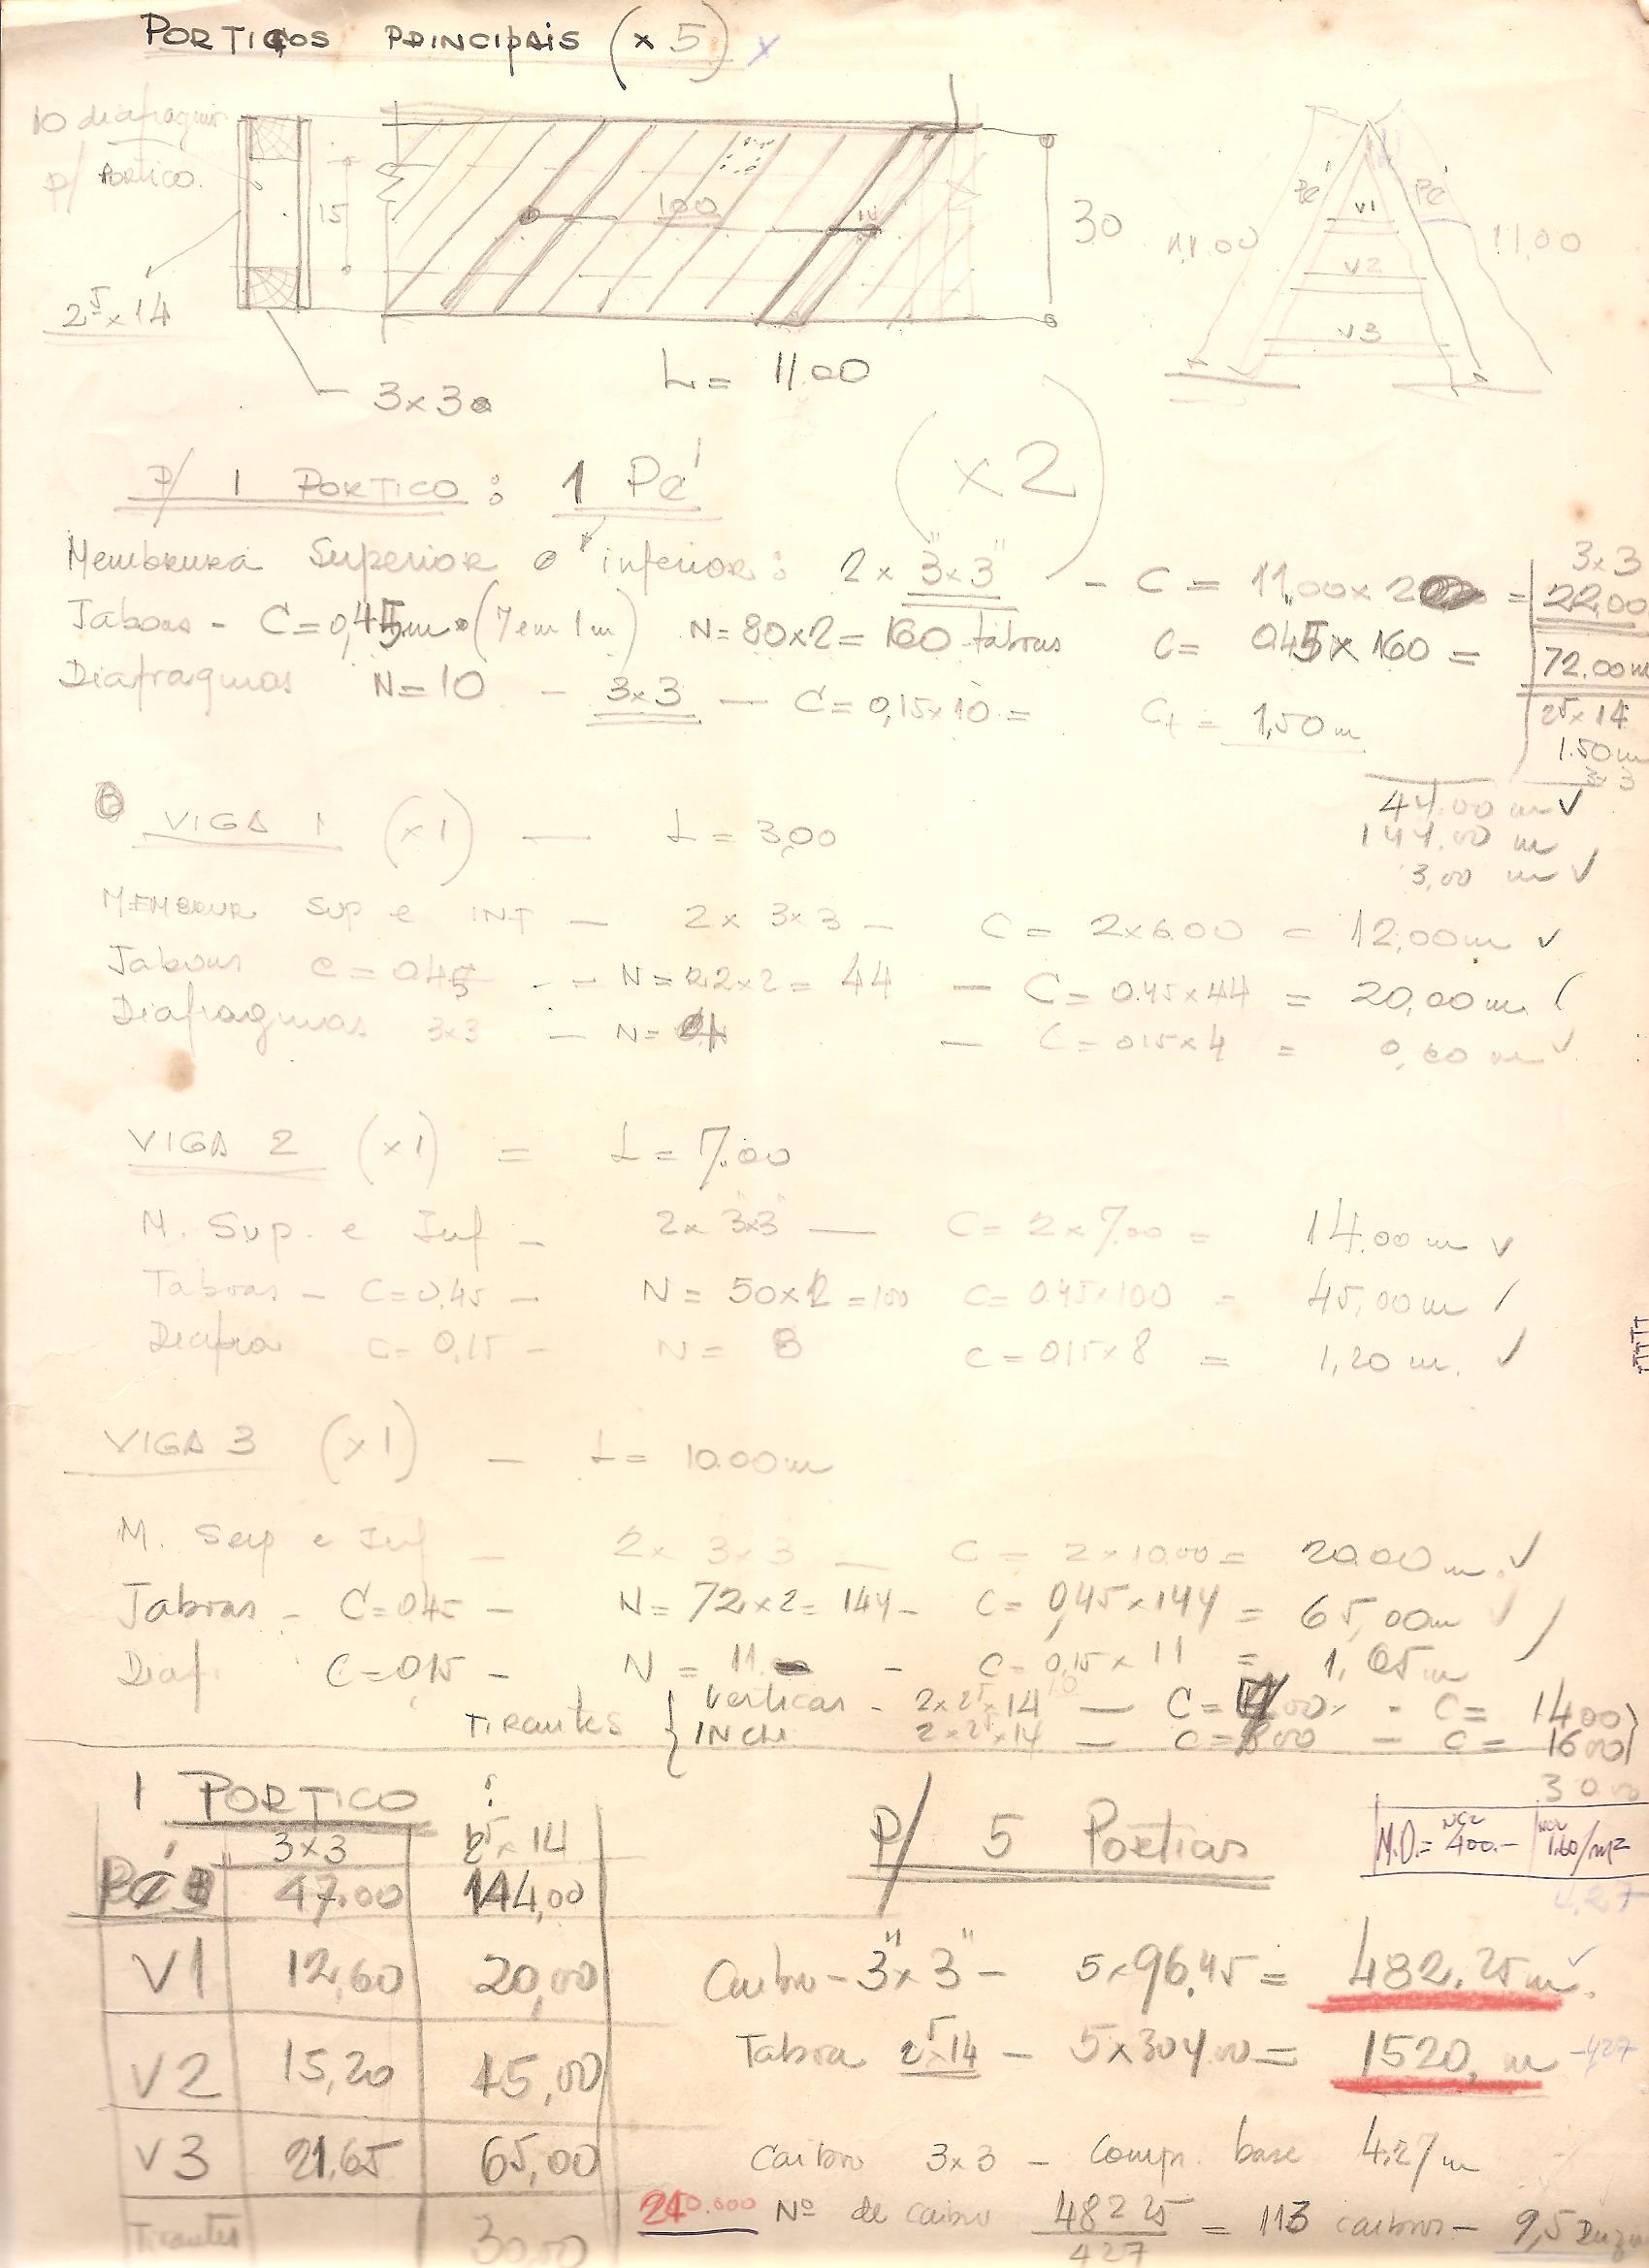 PORTICOS PRINCIPAIS (x 5) x
10 diafragmas
p/ PORTICO.
15
2⁵x14
3x3
100
30
L = 11.00
Pé
Pé
V1
V2
V3
11.00
11,00
P/ 1 PORTICO : 1 Pé (x2)
Membrura Superior e inferior: 2 x 3"x3" - C = 11,00 x 2 =
3x3
22,00
Taboas - C=0,45m (7 em 1m) N=80x2=160 tabuas C= 0,45 x 160 = 72.00m
2⁵x14
Diafragmas N=10 - 3x3 - C=0,15x10 = Ct = 1,50m
1.50m
3x3
44.00 m ✓
144.00 m
3,00 m ✓
VIGA 1 (x1) — L = 3,00
MEMBRUR SUP e INF - 2x 3x3 - C= 2x6.00 = 12,00m ✓
Taboas C=0,45 - N=22x2= 44 - C= 0.45x44 = 20,00m
Diafragmas 3x3 - N= 4 - C= 0,15x4 = 0,60 m ✓
VIGA 2 (x1) = L = 7.00
M. Sup. e Inf - 2x 3"x3" — C= 2x7.00 = 14.00m ✓
Taboas - C=0,45 - N= 50x2=100 C= 0.45x100 = 45,00m
Diafra C= 0,15 - N= 8 C=0,15x8 = 1,20 m. ✓
VIGA 3 (x1) - L= 10.00m
M. Sup e Inf - 2x 3x3 - C = 2x10.00 = 20.00 m. ✓
Taboas - C=0,45 - N=72x2=144 - C= 0,45x144 = 65,00m ✓
Diaf. C=0,15 - N= 11 - C= 0,15x11 = 1,65m
TIRANTES { Verticas - 2x2⁵x14 — C=7,00 - C= 14 00
INCLI 2x2⁵x14 — C=8 00 - C= 16 00 }
30 00
1 PORTICO :
3x3 2⁵x14
PÉS 47.00 144,00
V1 12,60 20,00
V2 15,20 45,00
V3 21,65 65,00
Tirantes 30,00
P/ 5 Porticos
M.O.= NCr 400.- NCr 1.60/m2
4,27
Caibro - 3"x3" - 5x96,45 = 482.25m.
Taboa 2⁵x14 - 5x304.00 = 1520, m -427
Caibro 3x3 - Compr. base 4.27m
240.000 Nº de caibro 482 25 / 427 = 113 caibros - 9,5 Duzi